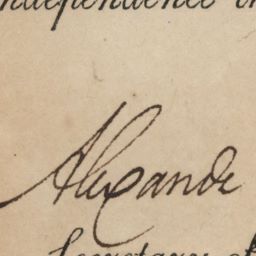 ndependence in
Alexande
Secretary of